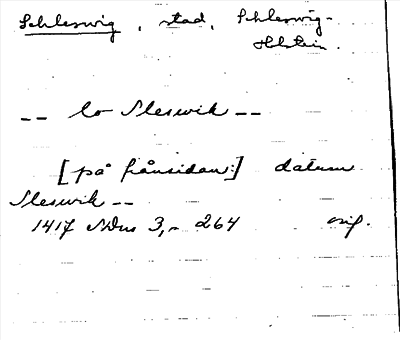 Schleswig, stad, Schleswig-
Holstein.
-- to Sleswik --
[på frånsidan:] datum
Sleswik --
1417 NDns 3, 264 orig.